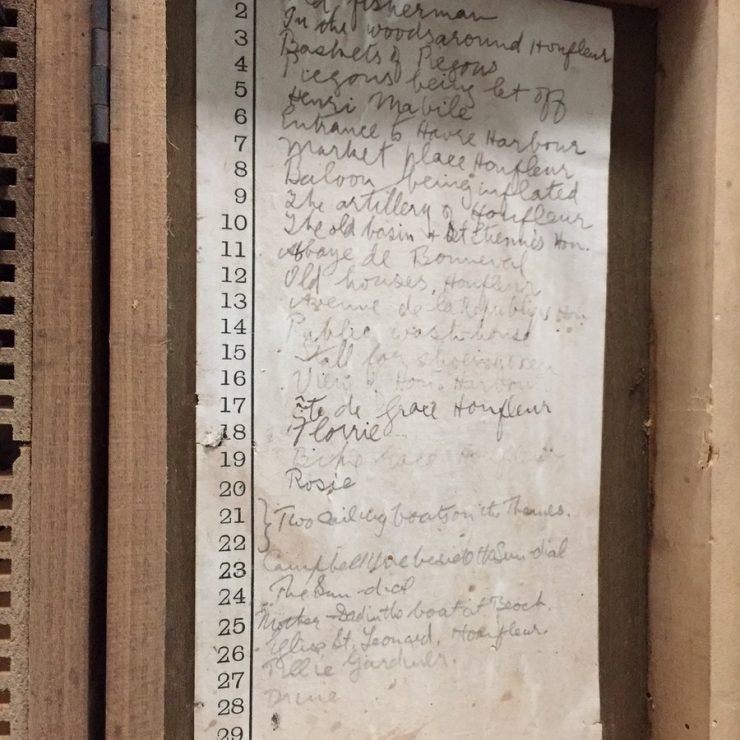 2 fisherman
3 In the woods around Honfleur
4 Baskets of Pegons
5 Piegons being let off
6 Henri Mabile
7 Entrance to Havre Harbour
8 Market place Honfleur
9 Baloon being inflated
10 The artillery of Honfleur
11 The old basin + St Etiennis Hon.
12 Abbaye de Bonneval
13 Old houses, Honfleur
14 Avenue de la Republique Hon
15 Public wash-house
16 Stall for
17 View of Honf. Harbour
18 de Grace Honfleur
19 Florrie
20
21 Rosie
22 } Two sailing boats on the Thames.
23 Campbell beside the Sun-dial
24 The Sun-dial
25 Mother - Dad in the boat at Beach.
26 Eglise St. Leonard. Honfleur.
27 Gardner.
28
29